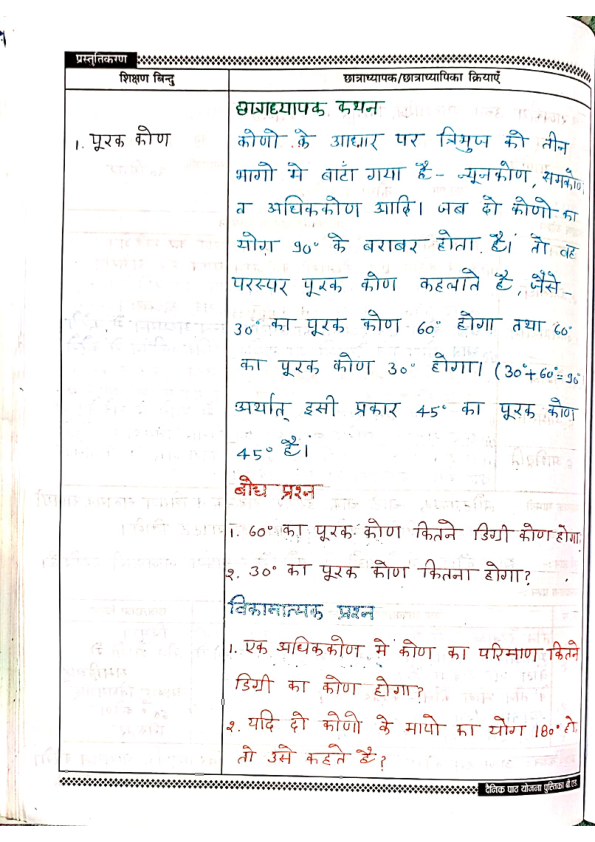 प्रस्तुतिकरण
शिक्षण बिन्दु
छात्राध्यापक/छात्राध्यापिका क्रियाएँ
1. पूरक कोण
छात्राध्यापक कथन
कोणो के आधार पर त्रिभुज को तीन
भागो मे बाटाँ गया है - न्यूनकोण, समकोण
व अधिककोण आदि। जब दो कोणो का
योग 90° के बराबर होता है। तो वह
परस्पर पूरक कोण कहलाते है, जैसे -
30° का पूरक कोण 60° होगा तथा 60°
का पूरक कोण 30° होगा। (30°+60°=90°
अर्थात् इसी प्रकार 45° का पूरक कोण
45° है।
बोध प्रश्न
1. 60° का पूरक कोण कितने डिग्री कोण होगा
2. 30° का पूरक कोण कितना होगा?
विकासात्यक प्रश्न
1. एक अधिककोण मे कोण का परिमाण कितने
डिग्री का कोण होगा?
2. यदि दो कोणो के मापो का योग 180° हो,
तो उसे कहते है?
दैनिक पाठ योजना पुस्तिका बी.एड.